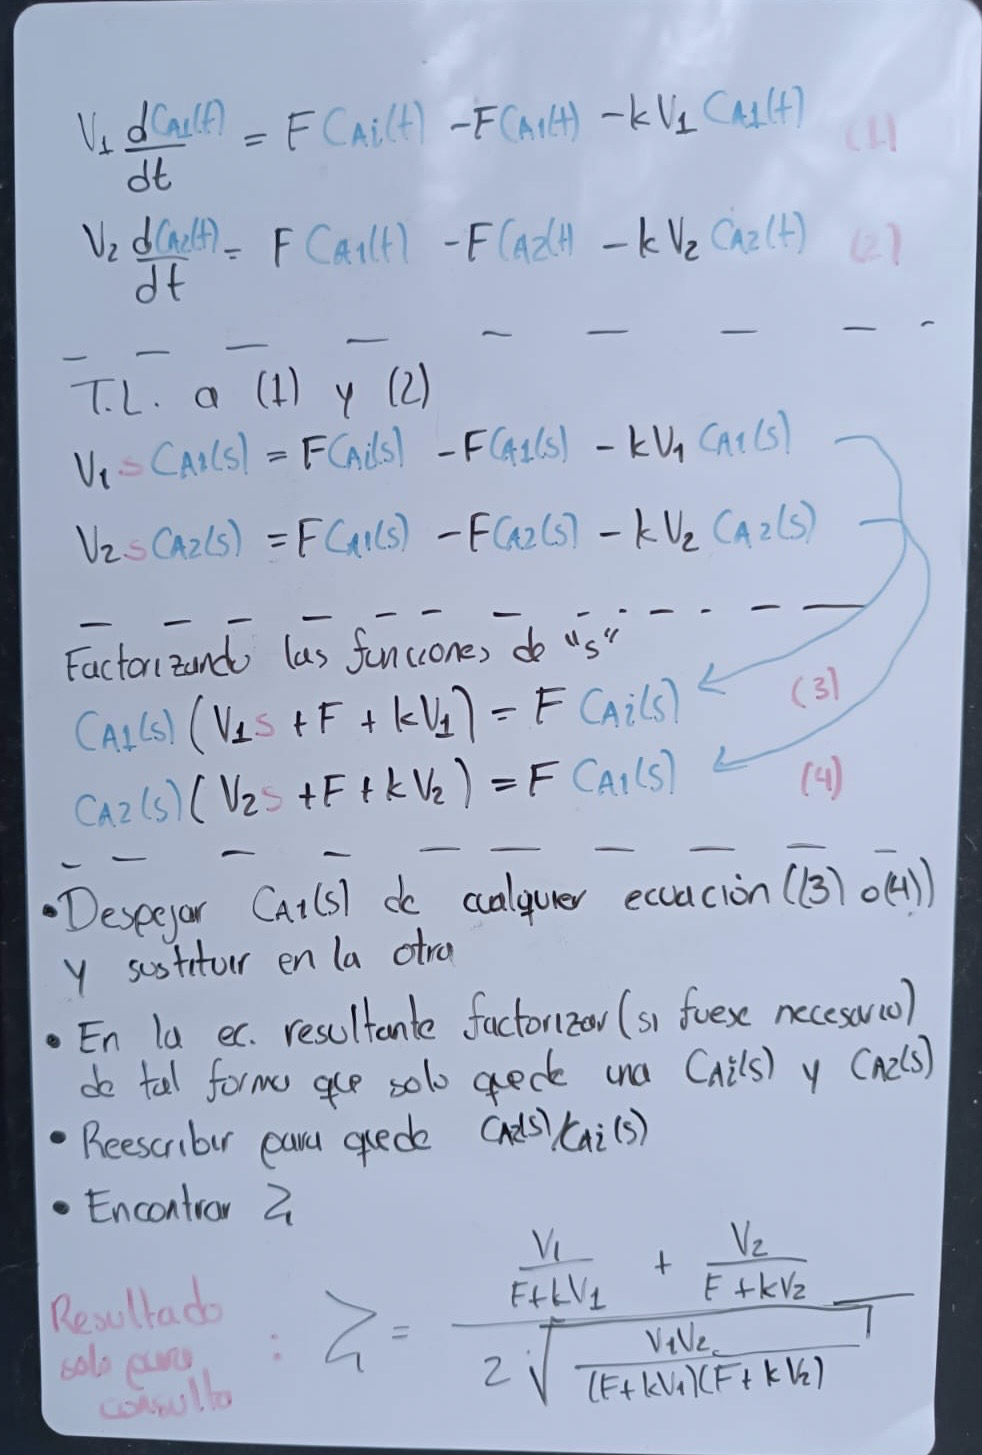 V₁ dCA1(t)/dt = F CAi(t) - F CA1(t) - kV₁ CA1(t) (1)
V₂ dCA2(t)/dt = F CA1(t) - F CA2(t) - kV₂ CA2(t) (2)
T.L. a (1) y (2)
V₁ s CA1(s) = F CAi(s) - F CA1(s) - kV₁ CA1(s)
V₂ s CA2(s) = F CA1(s) - F CA2(s) - kV₂ CA2(s)
Factorizando las funciones de "s"
CA1(s) (V₁s + F + kV₁) = F CAi(s) (3)
CA2(s) (V₂s + F + kV₂) = F CA1(s) (4)
• Despejar CA1(s) de cualquier ecuación ((3) o (4))
y sustituir en la otra
• En la ec. resultante factorizar (si fuese necesario)
de tal forma que solo quede una CAi(s) y CA2(s)
• Reescribir para quede CA2(s)/CAi(s)
• Encontrar ξ
Resultado
solo para
consulta
: ξ = (V₁/(F+kV₁) + V₂/(F+kV₂)) / (2√(V₁V₂/((F+kV₁)(F+kV₂))))